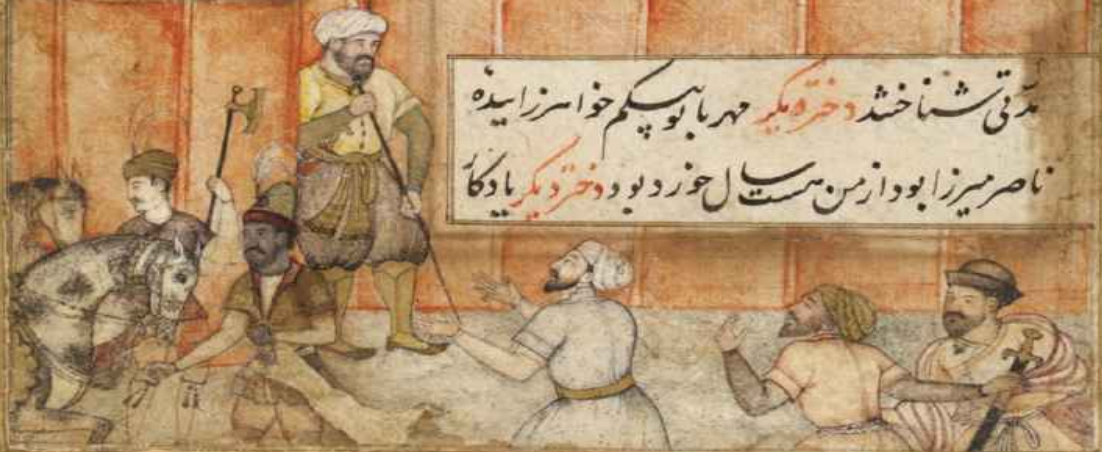 مدّتی شناختند دختر دیکر مهربانو بیکم خواهر زاییده
ناصر میرزا بود از من هشت سال خورد بود دختر دیکر یادکار